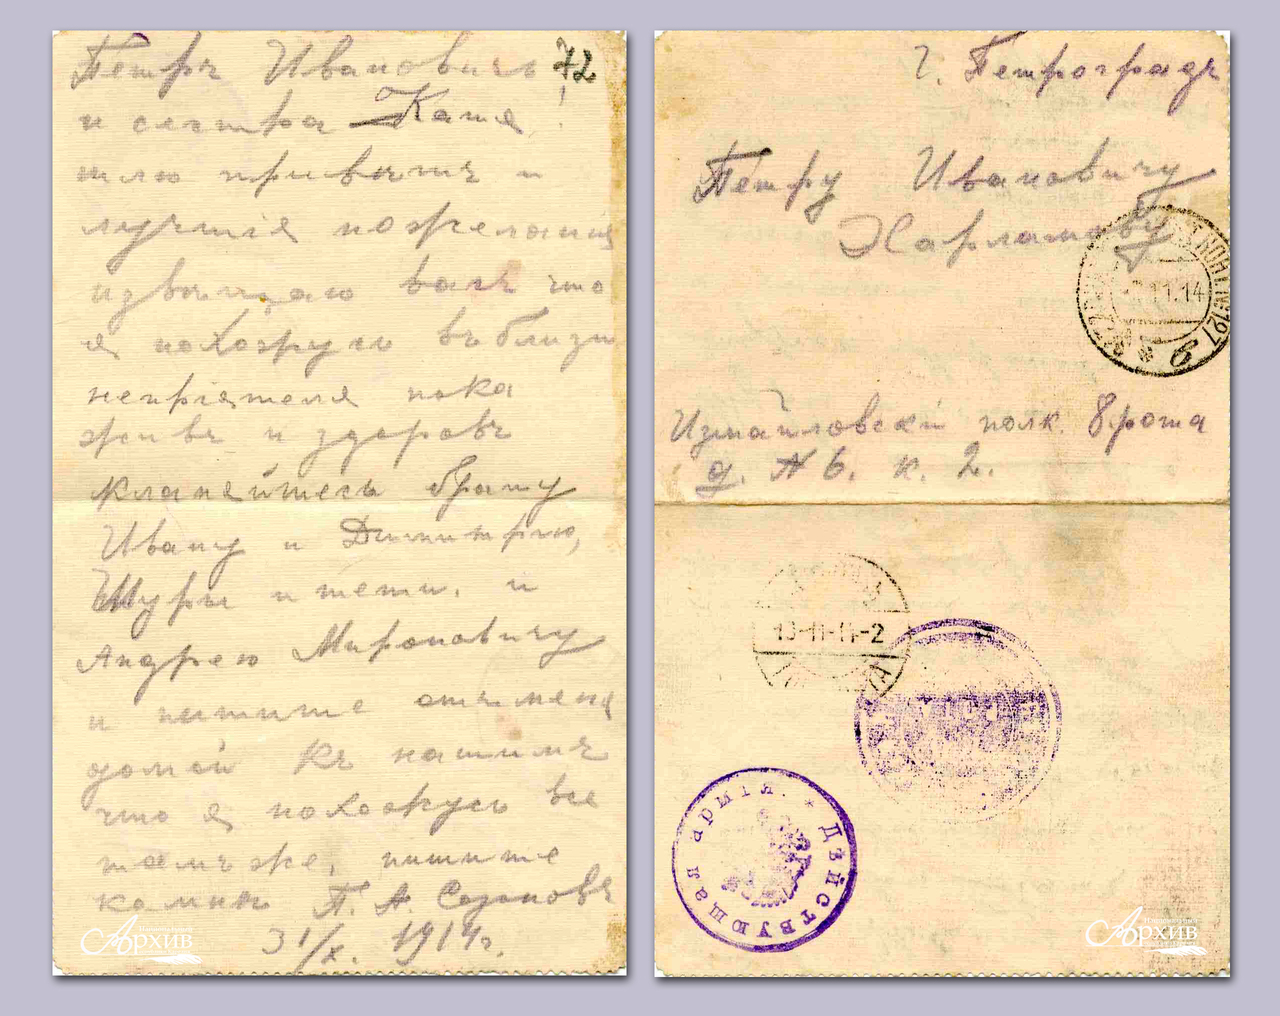 Петръ Ивановичъ 72
и сестра Катя!
шлю привѣтъ и
лучшія пожеланія
извѣщаю васъ что
я нахожусь въ близи
непріятеля пока
живъ и здоровъ
кланейтесь брату
Ивану и Димитрію,
Шуры и тети. и
Андрею Мироновичу
и пишите отъ меня
домой къ нашимъ
что я нахожусь все
тамъ же, пишите
ко мнѣ П. А. Созоновъ
31/X. 1914г.
Архив
Г. Петроградъ
Петру Ивановичу
Харламову
КОНТ. №127
11.14
Измайловскій полк. 8 рота
д. № 6. к. 2.
-11-14-2
Дѣйствующая армія.
Архив